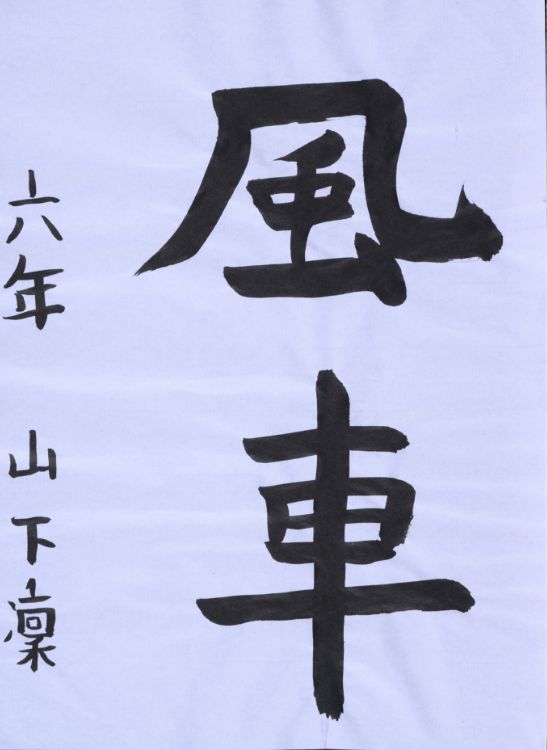 風車
六年 山下凜